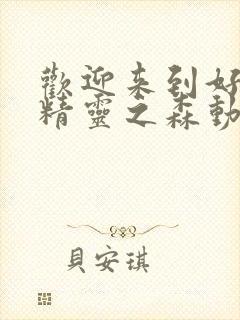 歡迎来到好
精靈之森動
貝安琪